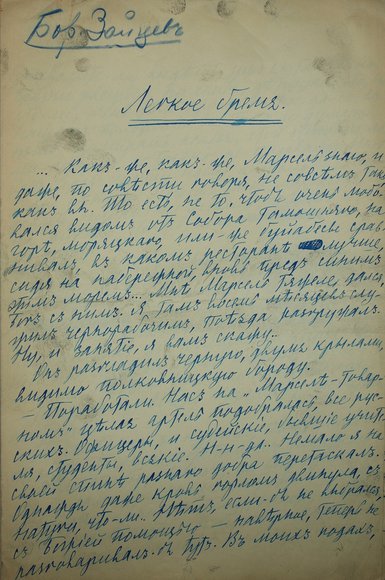 Бор. Зайцевъ
Легкое бремя.
... Какъ-же, какъ-же, Марсель знаю, и
даже, по совѣсти говоря, не совсѣмъ такъ
какъ вы. То есть, не то, чтобъ очень любо-
вался видомъ отъ Собора тамошняго, на
горѣ, моряцкаго, или-же буйабесы срав-
нивалъ, въ какомъ ресторанѣ лучше,
сидя на набережной, вновь предъ синимъ
этимъ моремъ... Мнѣ Марсель тяжеле дался,
Богъ съ нимъ. Я тамъ восемь мѣсяцевъ слу-
жилъ чернорабочимъ, поѣзда разгружалъ.
Ну, и занятіе, я вамъ скажу.
Онъ разгладилъ черную, двумя крылами,
видимо полковницкую бороду.
— Поработали. Насъ на "Марсель-товар-
номъ" цѣлая артель подобралась, все рус-
скихъ. Офицеры, и судейскіе, бывшіе учите-
ля, студенты, всякіе. Н-н-да. Немало я на
своей спинѣ разнаго добра перетаскалъ.
Однажды даже кровь горломъ двинула, съ
натуги, что-ли. Вѣтъ, если-бъ не выбрался
съ Божіей помощью — навѣрное, теперь не
разговаривалъ-бъ тутъ. Въ моихъ годахъ,